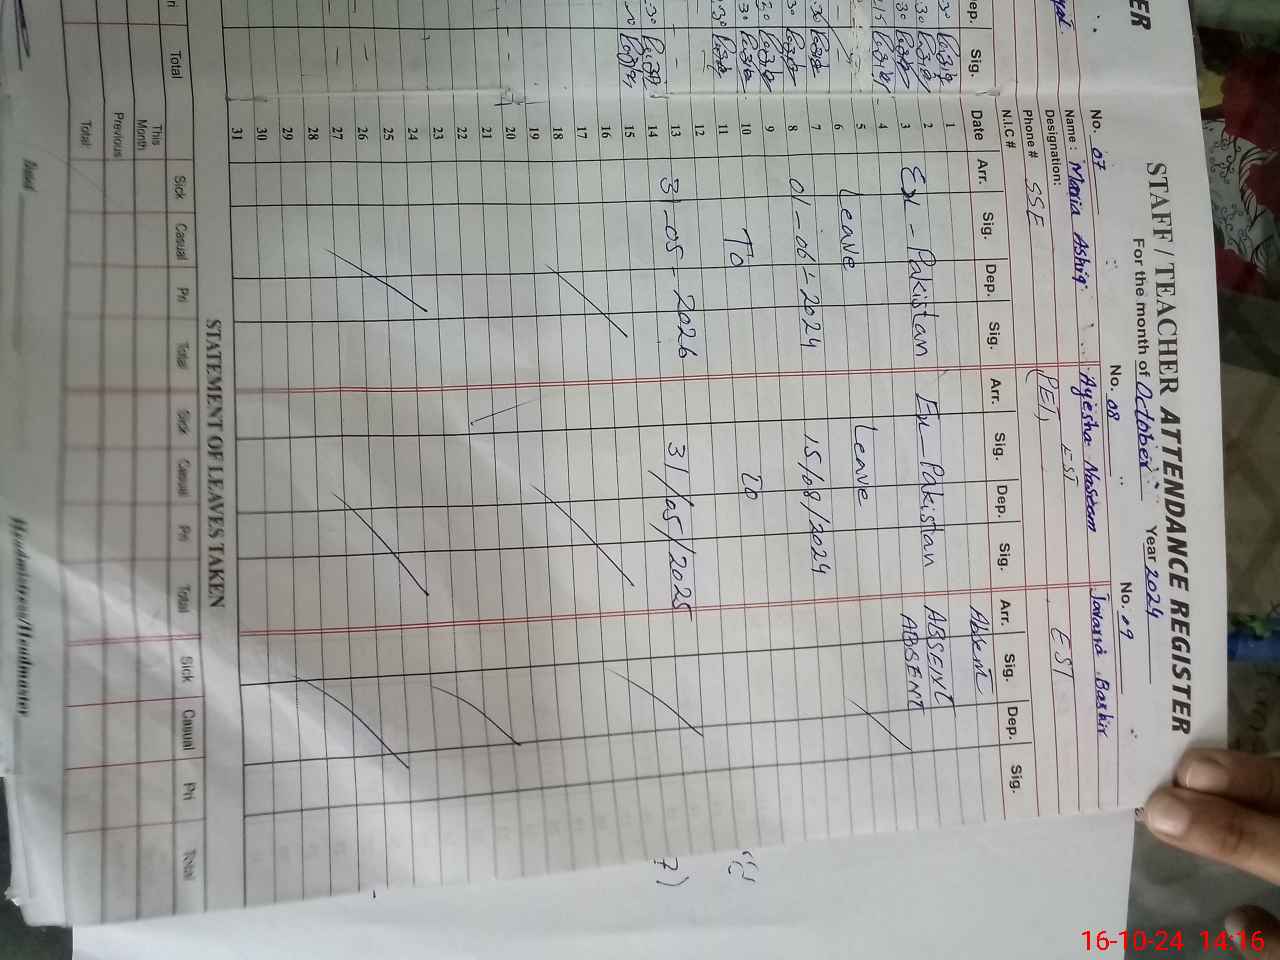 STAFF / TEACHER ATTENDANCE REGISTER
For the month of October Year 2024
No. 07
Name: Maria Ashiq
Designation: SSE
Phone #
N.I.C #
No. 08
Ayesha Naseem
EST
(PET)
No. 09
Javaria Bashir
EST
Date Arr. Sig. Dep. Sig. Arr. Sig. Dep. Sig. Arr. Sig. Dep. Sig.
1 Absent
2 Ex-Pakistan Ex-Pakistan ABSENT
3 ABSENT
4
5 Leave Leave
6
7 01-06-2024 15/08/2024
8
9
10 To To
11
12
13 31-05-2026 31/05/2025
14
15
16
17
18
19
20
21
22
23
24
25
26
27
28
29
30
31
STATEMENT OF LEAVES TAKEN
Sick Casual Pri Total Sick Casual Pri Total Sick Casual Pri Total
This Month
Previous
Total
Headmistress/Headmaster
ER
Dep. Sig.
Total
16-10-24 14:16